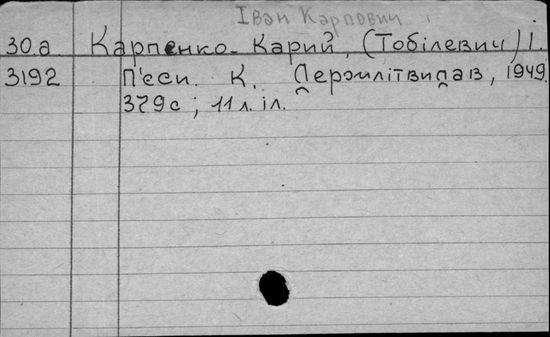 Іван Карпович
30а Карпенко-Карий, (Тобілевич) І.
3192 П'єси. К. Держлітвидав, 1949.
379с; 11л. іл.